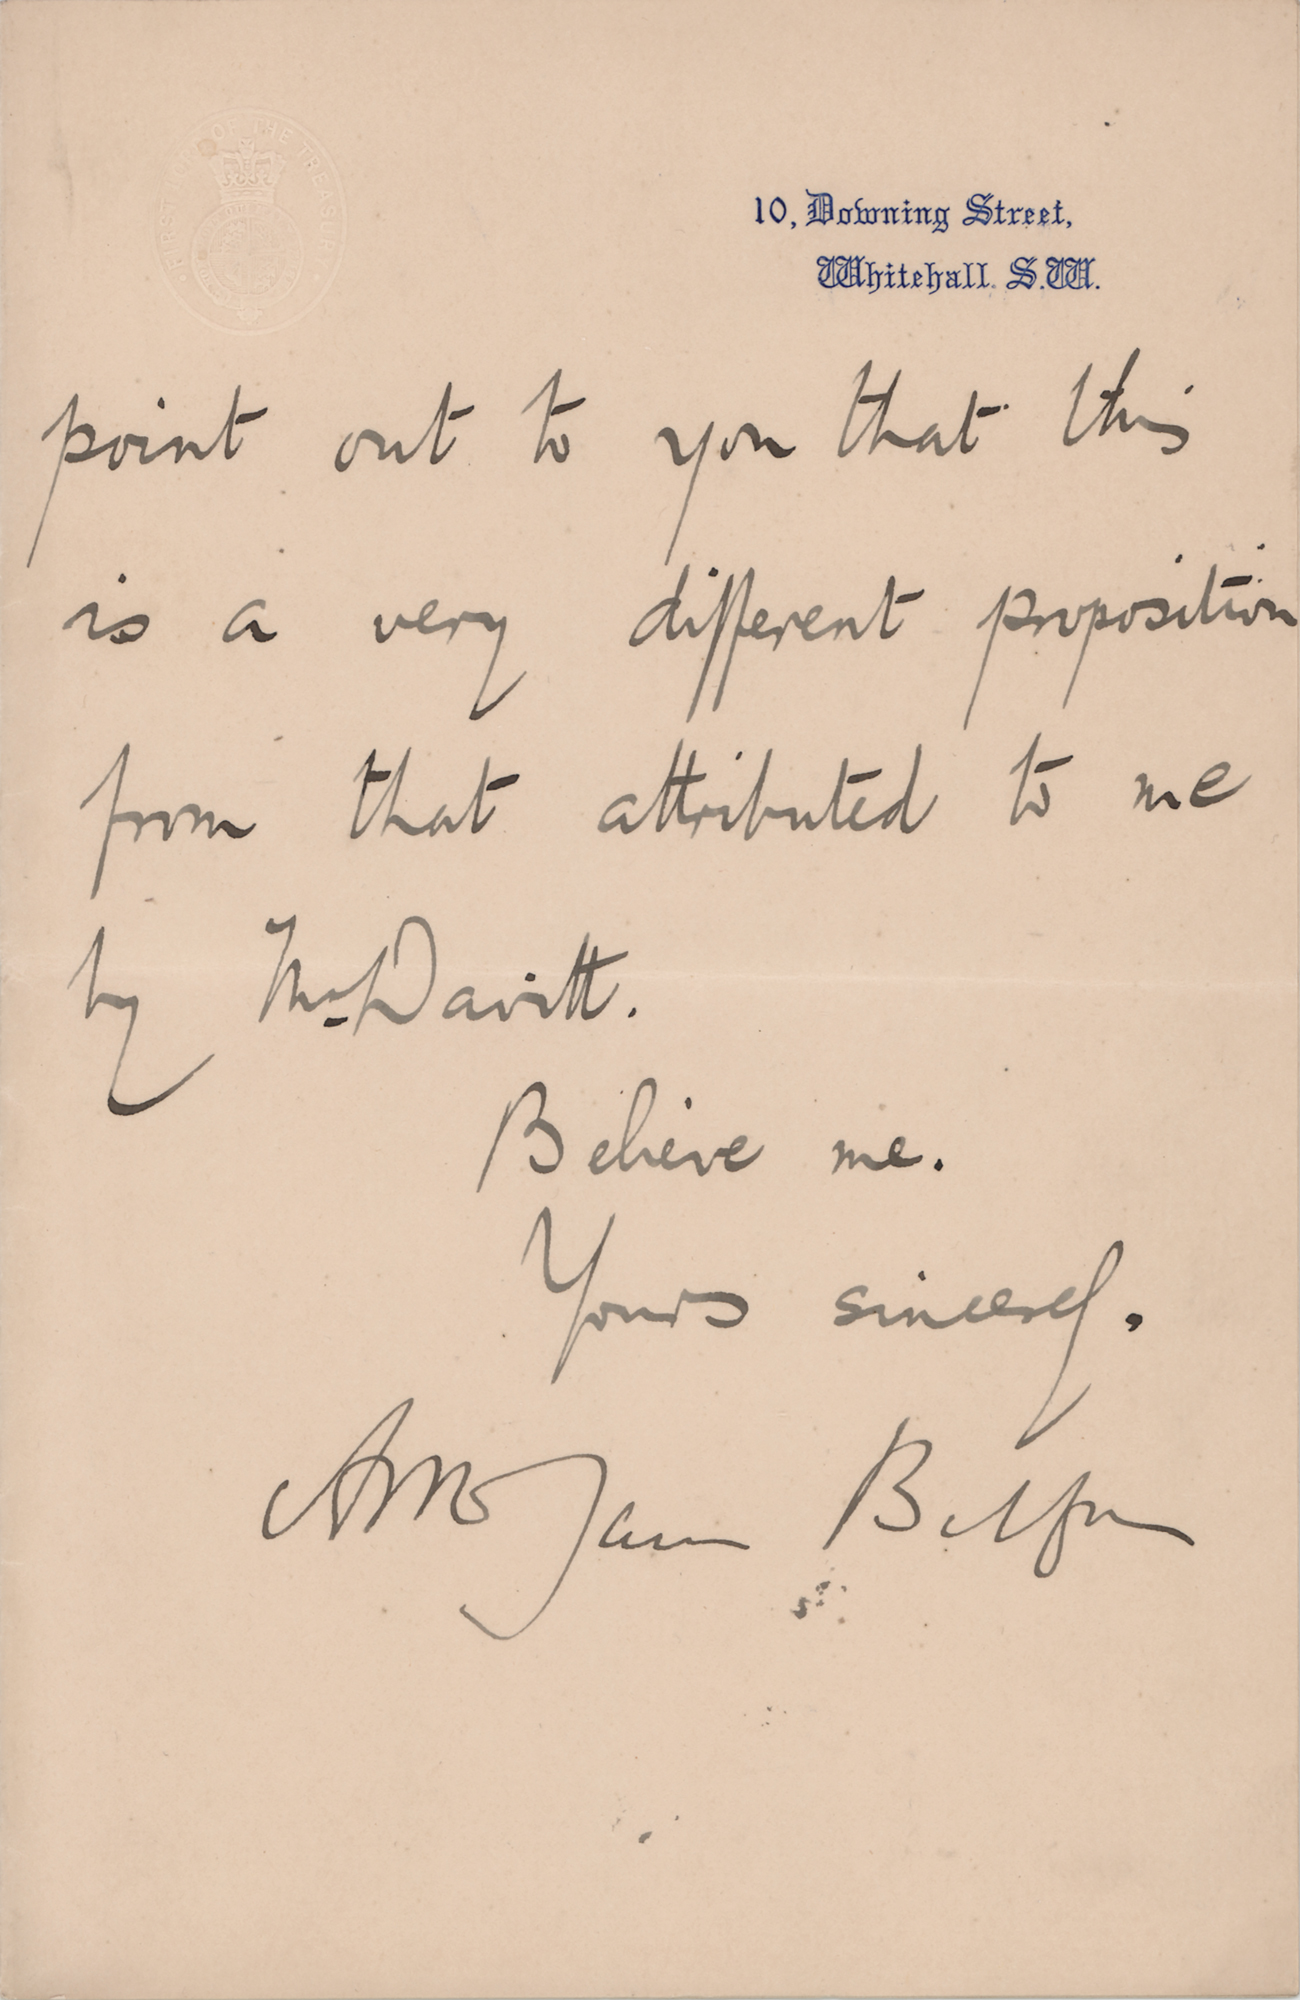 FIRST LORD OF THE TREASURY
10, Downing Street,
Whitehall. S.W.
point out to you that this
is a very different proposition
from that attributed to me
by Mr Davitt.
Believe me.
Yours sincerely.
Arthur James Balfour